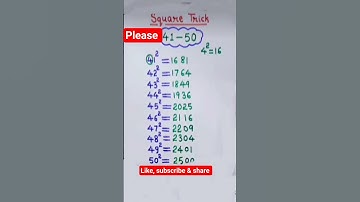 Square Trick
Please
41-50
4²=16
41²=1681
42²=1764
43²=1849
44²=1936
45²=2025
46²=2116
47²=2209
48²=2304
49²=2401
50²=2500
Like, subscribe & share